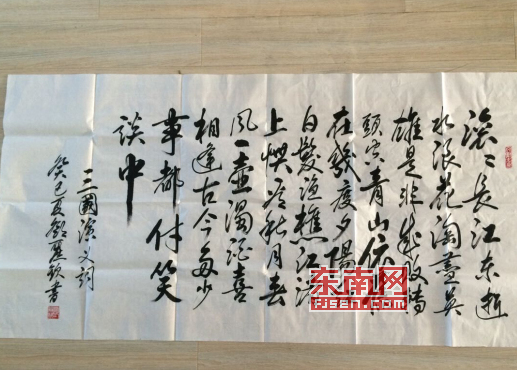 滚〻長江东逝
水浪花淘盡英
雄是非成敗轉
頭空青山依舊
在幾度夕陽
白髮渔樵江渚
上惯看秋月春
风一壶濁酒喜
相逢古今多少
事都付笑
談中
三國演义詞
癸巳夏 书
东南网
FJSEN.COM